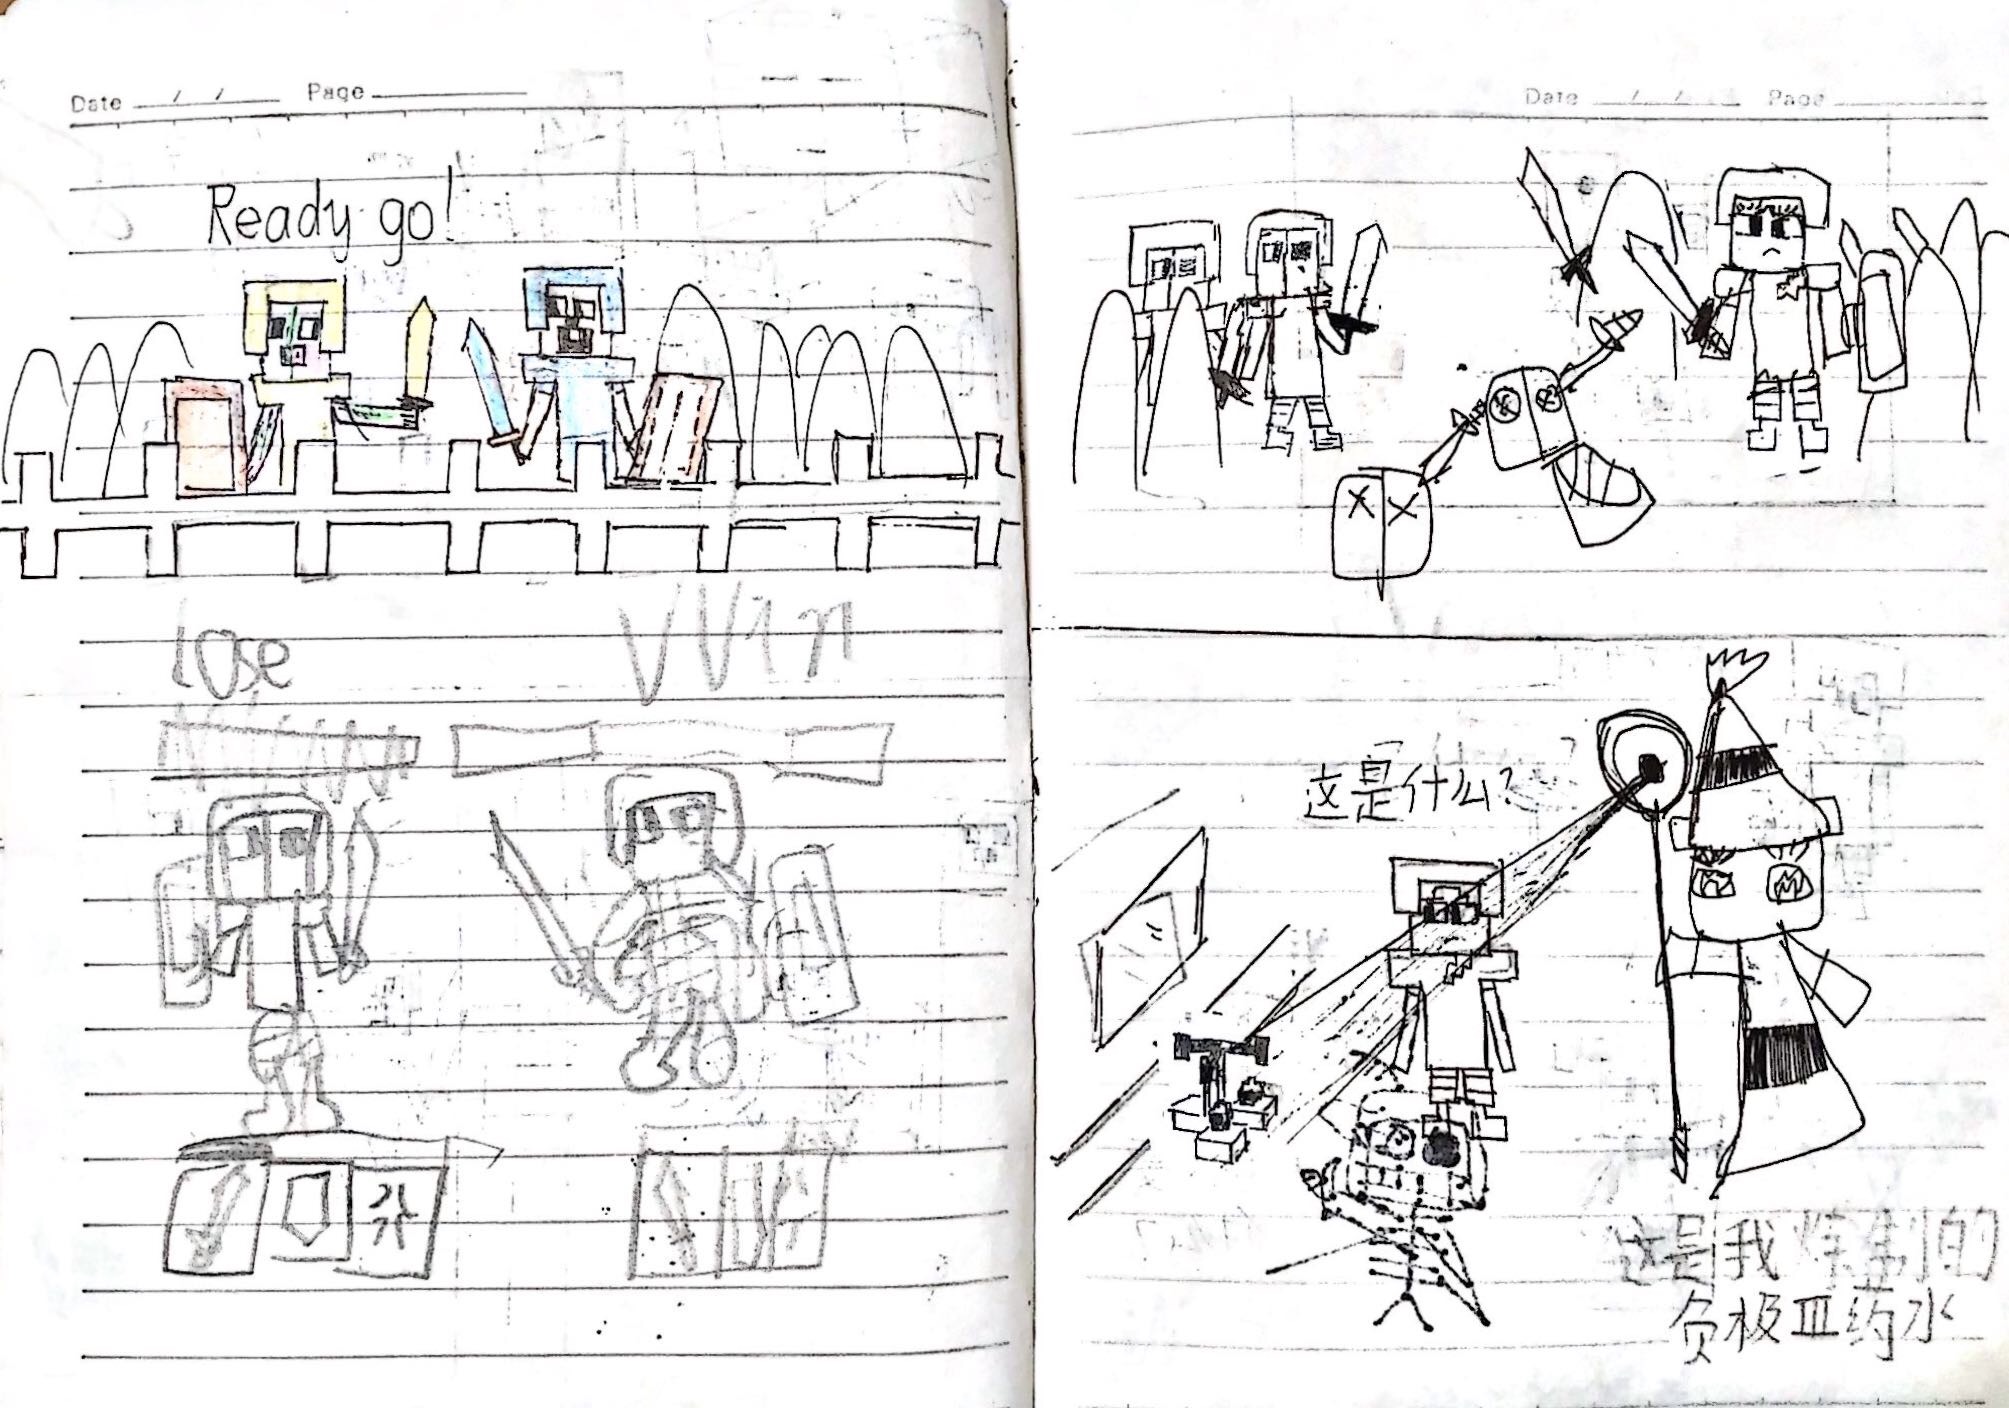 Date / / Page
Ready go!
lose
Win
Date / / Page
这是什么?
这是我炼制的
负极III药水